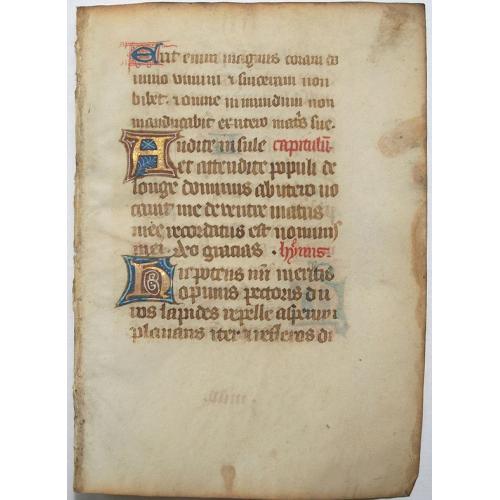 Erit enim magnus coram do
mino vinum & siceram non
bibet. & omne inmundum non
manducabit ex utero mats sue.
Audite insule capitulũ
et attendite populi de
longe dominus ab utero uo
cauit me de ventre matris
mee recordatus est nominis
mei. deo gracias. hỹmnus
Nuc potens nr̃i meritis
opimis pectoris du
ros lapides repelle asperum
planans iter & reflexos di